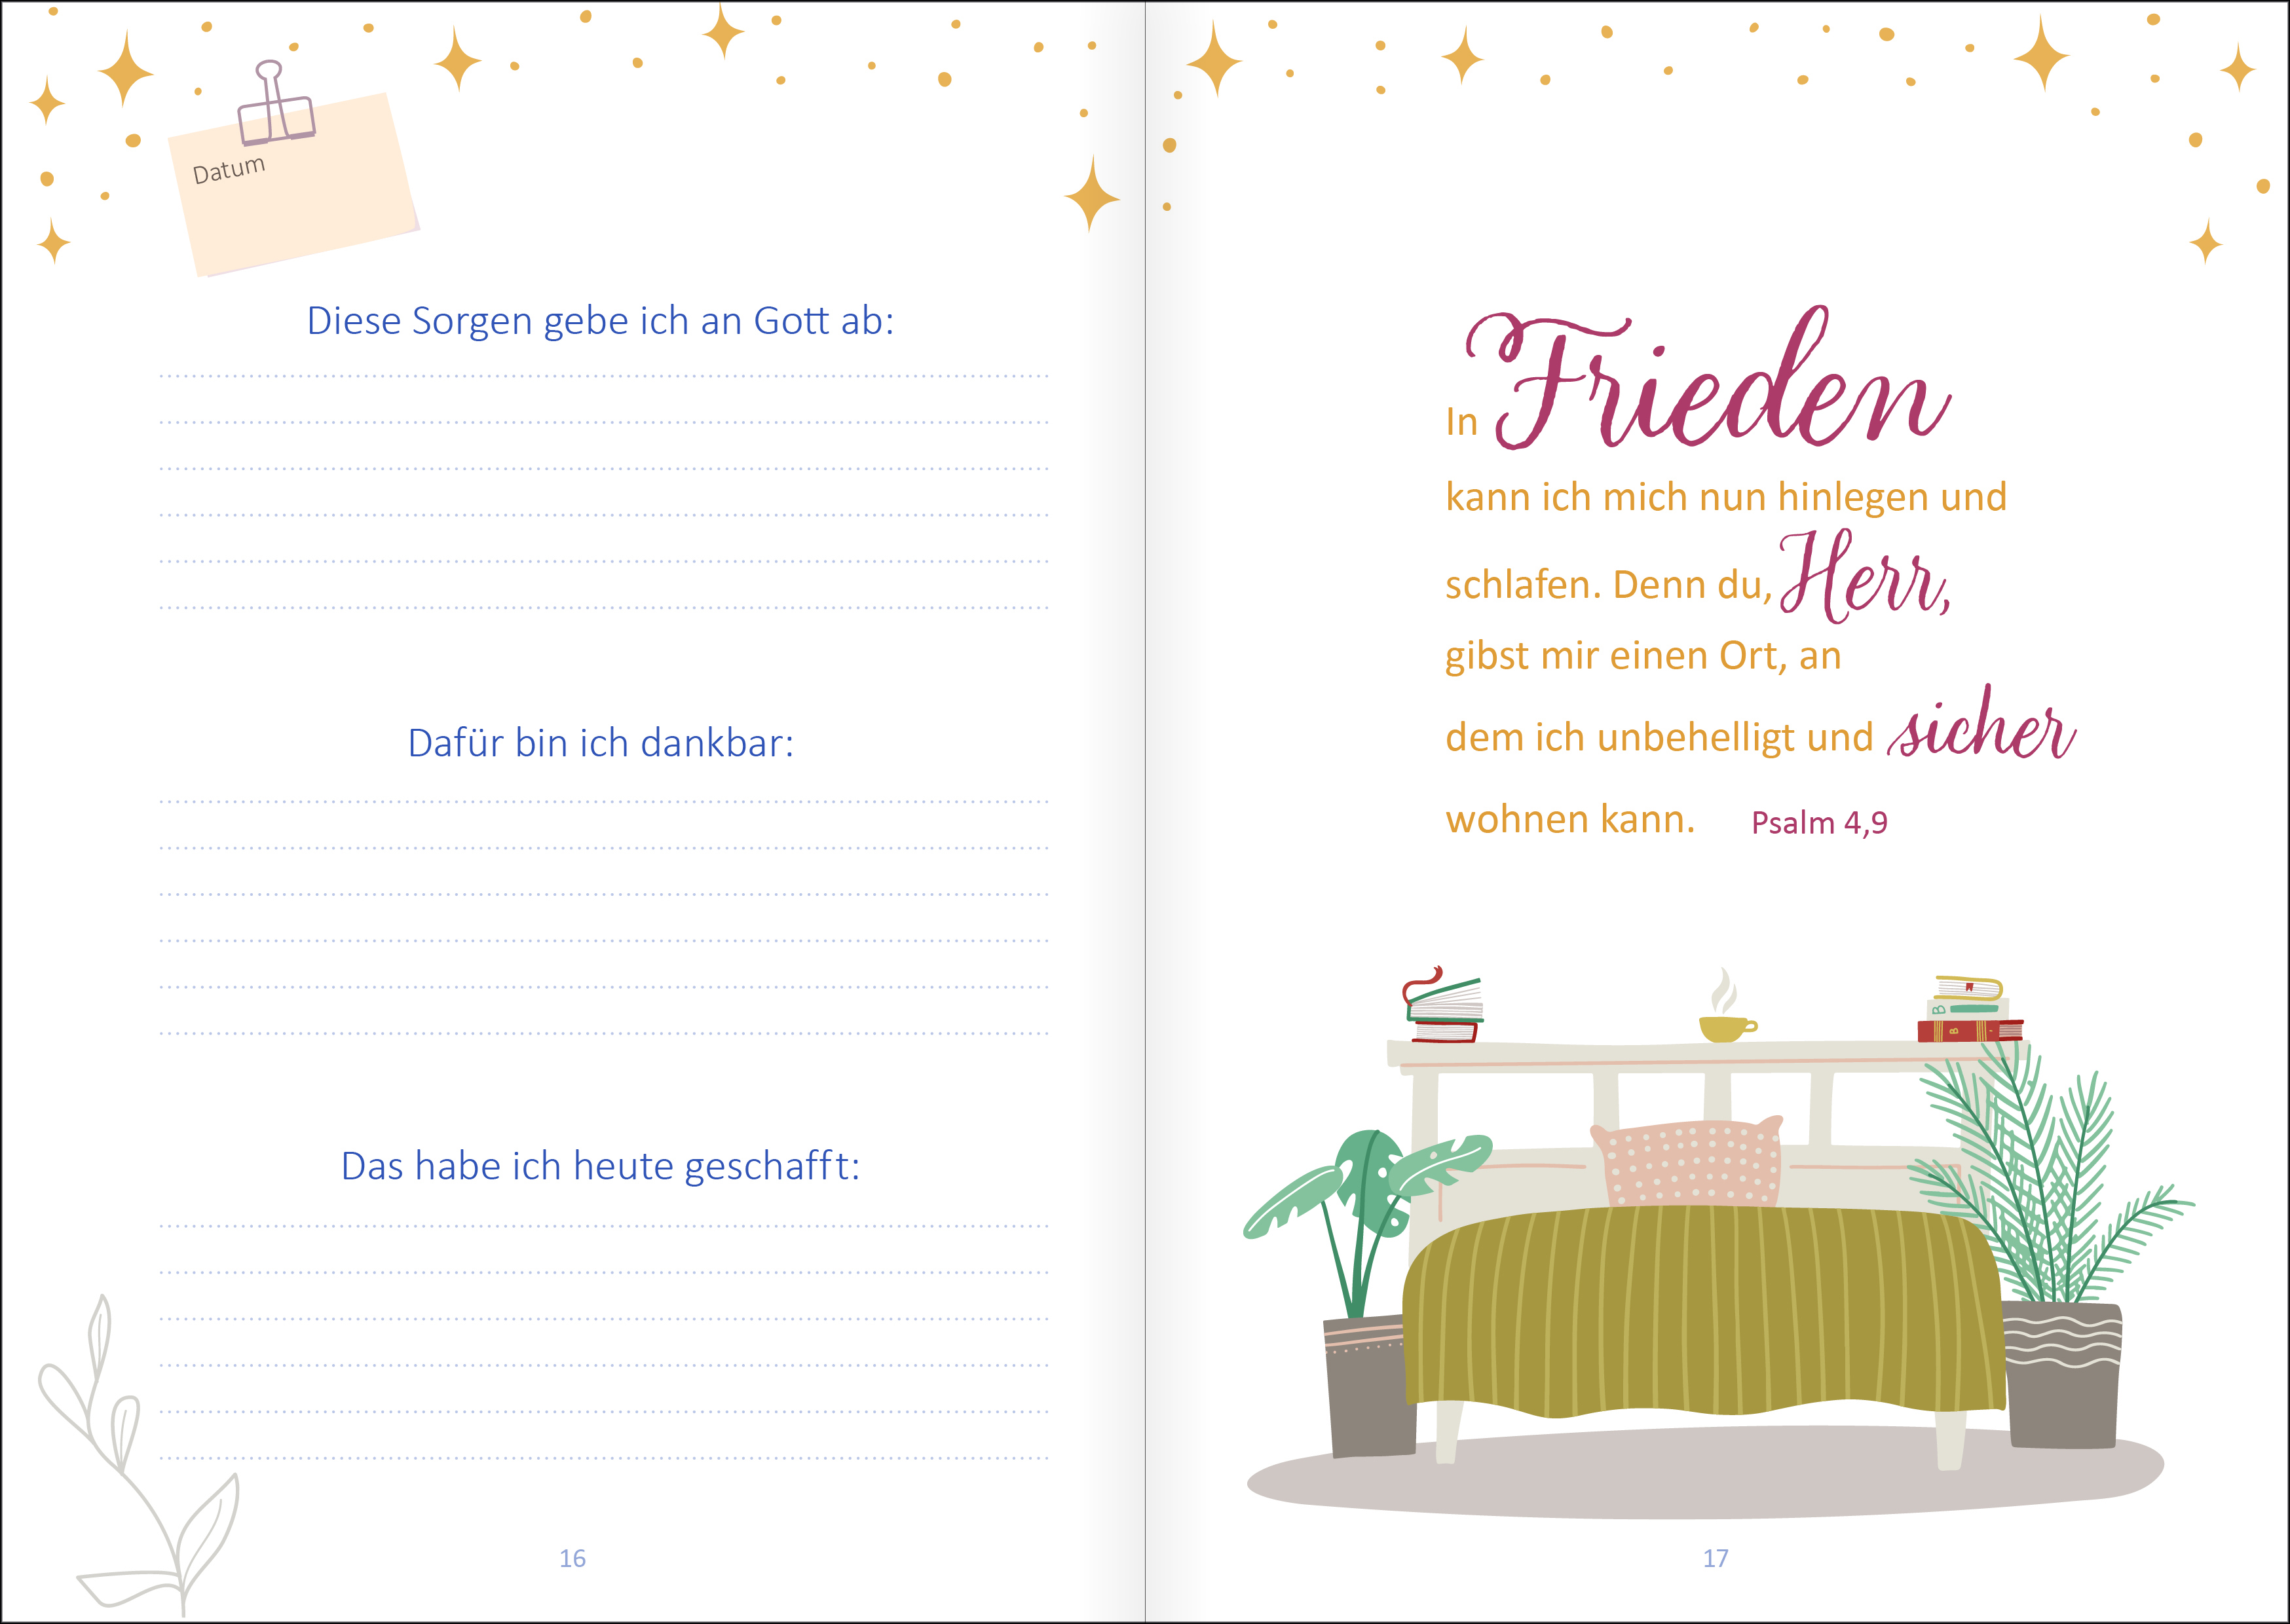 Datum
Diese Sorgen gebe ich an Gott ab:
Dafür bin ich dankbar:
Das habe ich heute geschafft:
16
In Frieden
kann ich mich nun hinlegen und
schlafen. Denn du, Herr,
gibst mir einen Ort, an
dem ich unbehelligt und sicher
wohnen kann. Psalm 4,9
B
B
17